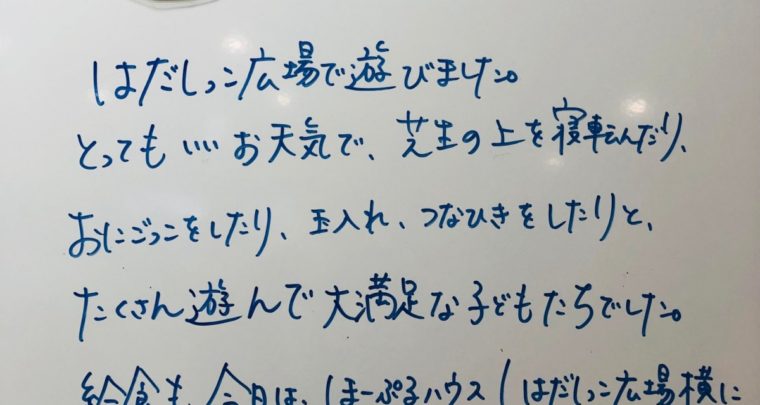 はだしっこ広場で遊びました。
とっても いいお天気で、芝生の上を寝転んだり、
おにごっこをしたり、玉入れ、つなひきをしたりと、
たくさん遊んで大満足な子どもたちでした。
給食も、今日は、しまーぷるハウス(はだしっこ広場横に